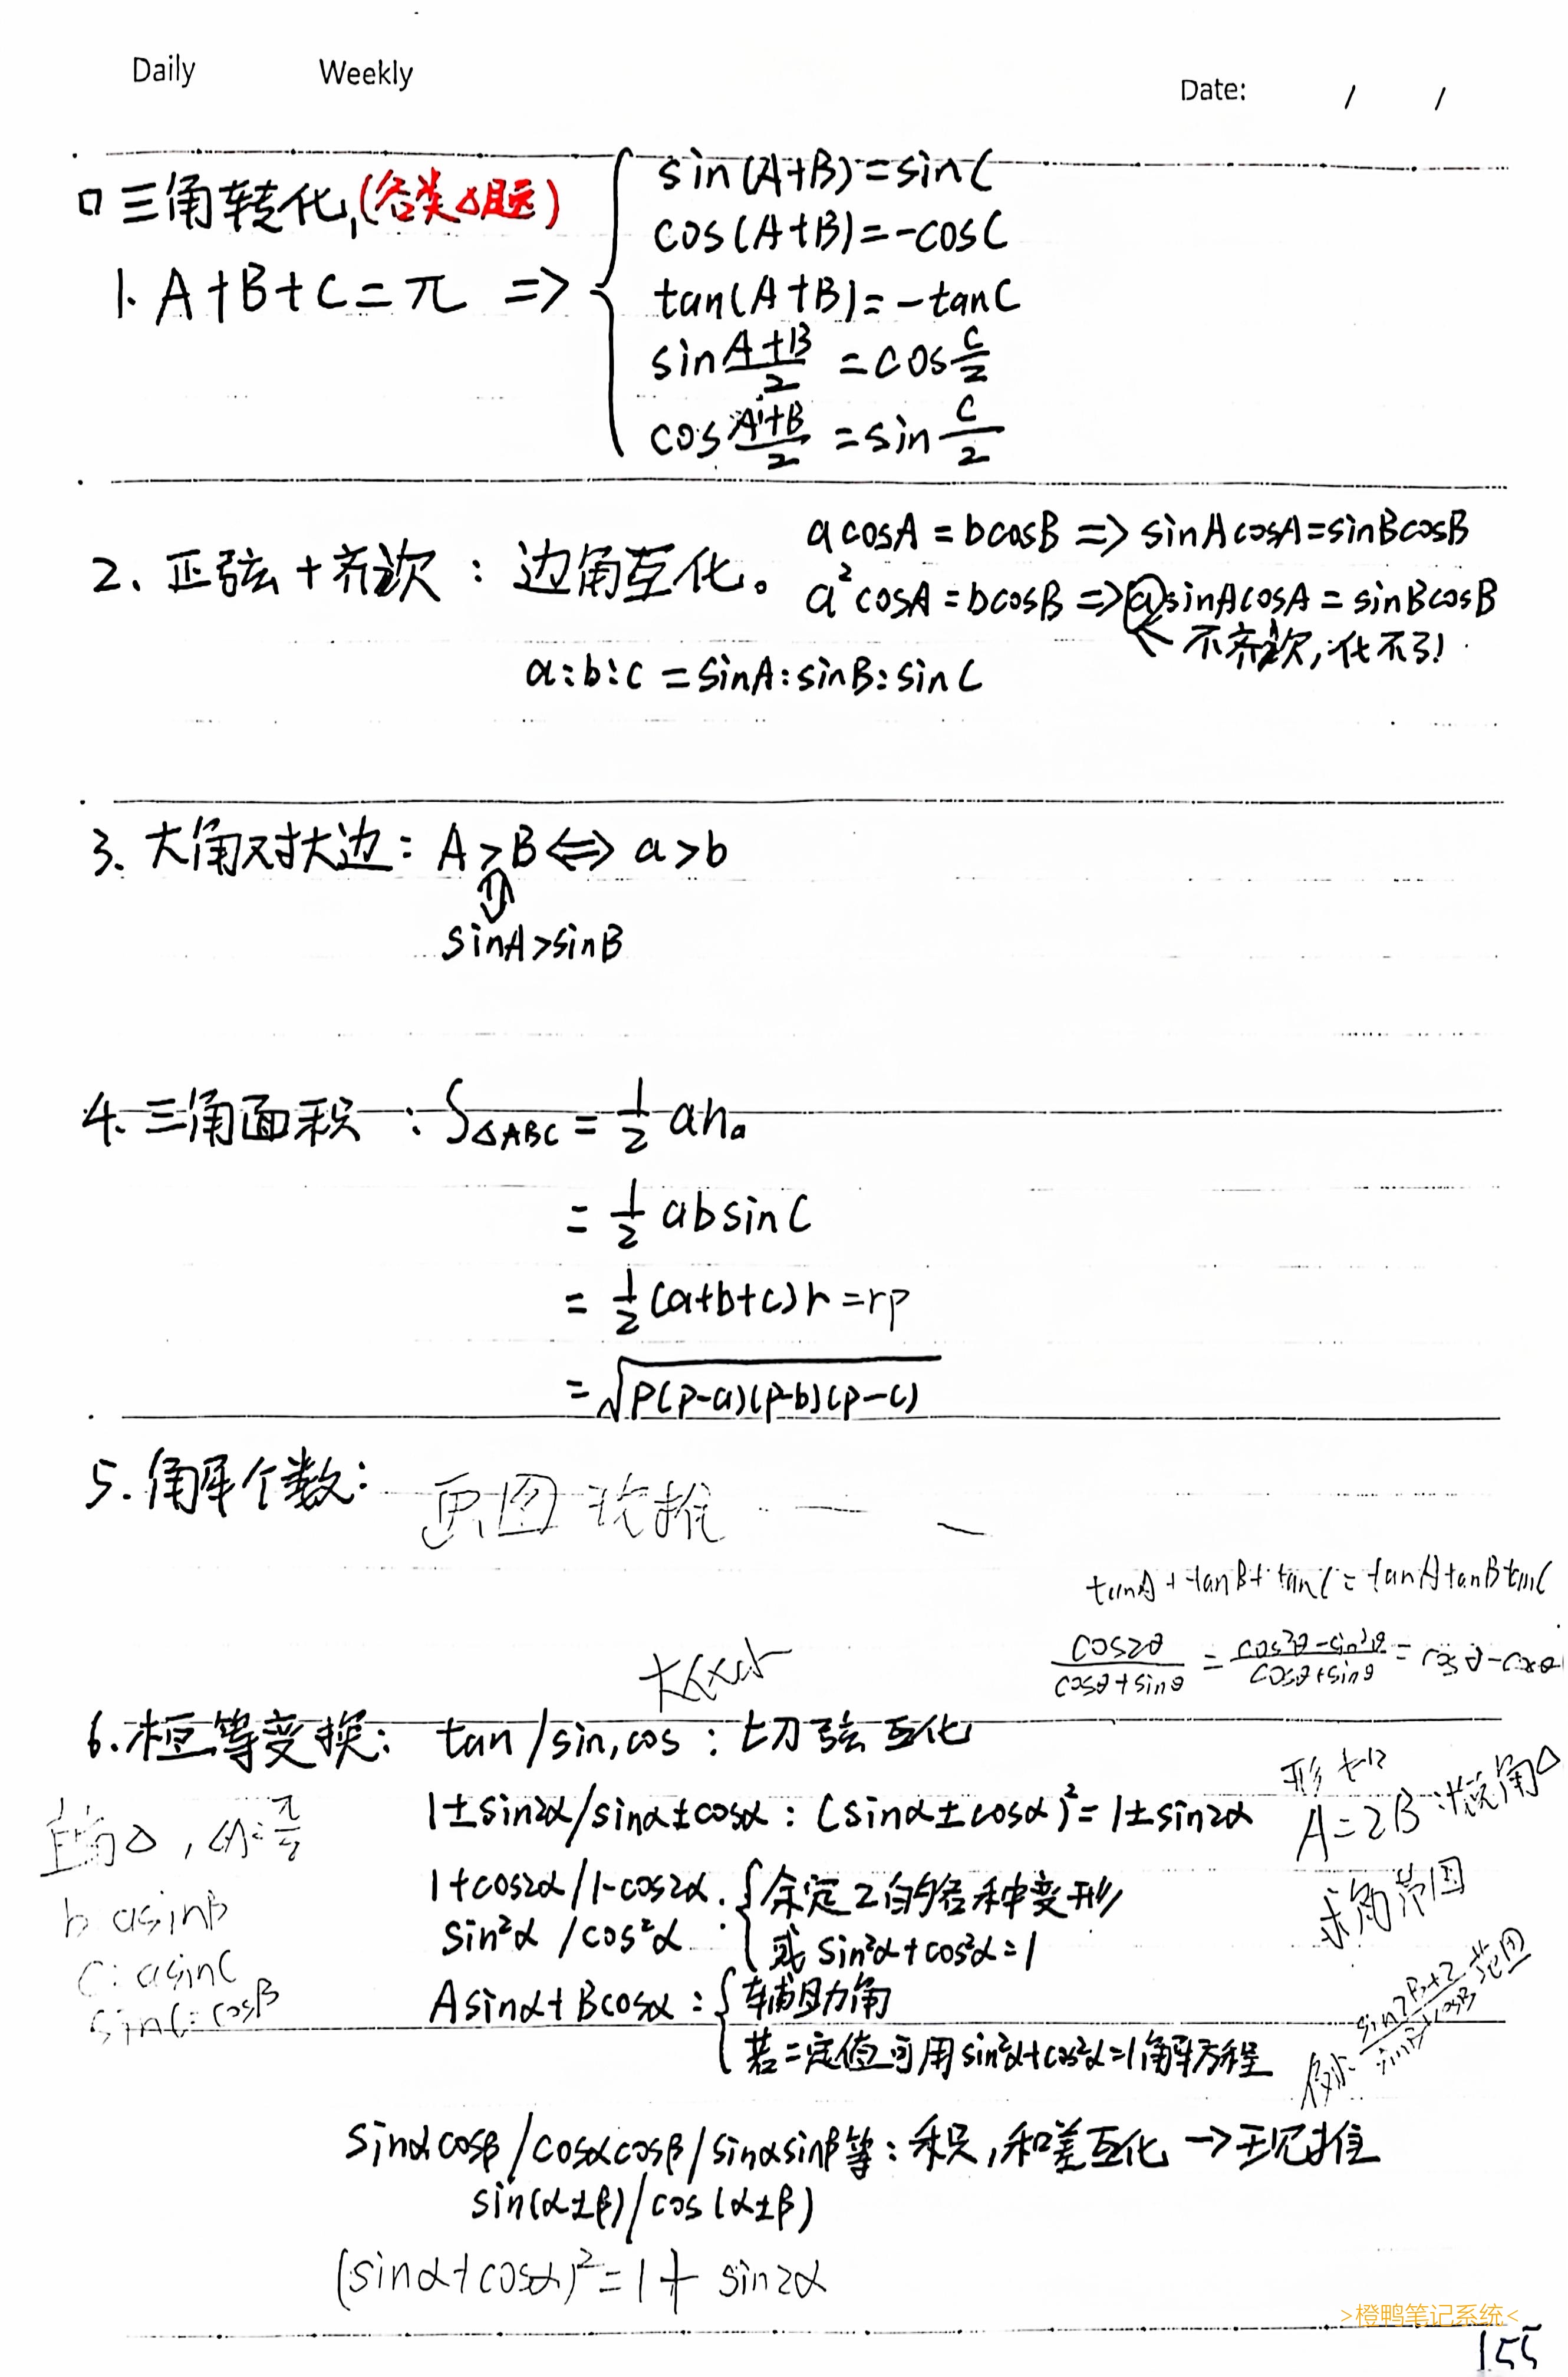 Daily Weekly Date: / /
口 三角转化,(各类△题)
sin(A+B)=sinC
cos(A+B)=-cosC
1. A+B+C=π => tan(A+B)=-tanC
sin(A+B)/2=cos C/2
cos(A+B)/2=sin C/2
acosA=bcosB=>sinAcosA=sinBcosB
2、正弦+齐次：边角互化。a²cosA=bcosB=>asinAcosA=sinBcosB
不齐次,化不了!
a:b:c=sinA:sinB:sinC
3、大角对大边：A>B⇔a>b
⇕
sinA>sinB
4.三角面积：S△ABC=1/2 ahₐ
=1/2 absinC
=1/2(a+b+c)r=rp
=√p(p-a)(p-b)(p-c)
5.角解个数：画图
tanA+tanB+tanC=tanAtanBtanC
cos2θ/(cosθ+sinθ)=(cos²θ-sin²θ)/(cosθ+sinθ)=
6.恒等变换：tan/sin,cos：切弦互化
1±sin2α/sinα±cosα：(sinα±cosα)²=1±sin2α
1+cos2α/1-cos2α
sin²α/cos²α：余定2的各种变形
或sin²α+cos²α=1
Asinα+Bcosα：辅助角
若=定值可用sin²α+cos²α=1解方程
A=2B 锐角△
求角范围
b asinB
C: asinC
sinC=cosB
sinαcosβ/cosαcosβ/sinαsinβ等：积,和差互化→现推
sin(α±β)/cos(α±β)
(sinα+cosα)²=1+sin2α
>橙鸭笔记系统<
155